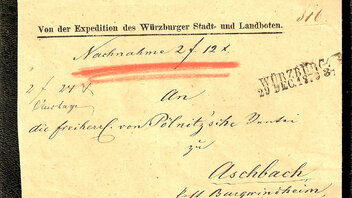 816.
Von der Expedition des Würzburger Stadt- und Landboten.
Nachnahme 2 f 12 x.
2 f 24 x
Auslage
WÜRZBURG
29 DEC.
An
die freiherrl. von Pölnitz'sche
zu
Aschbach
Burgwindheim